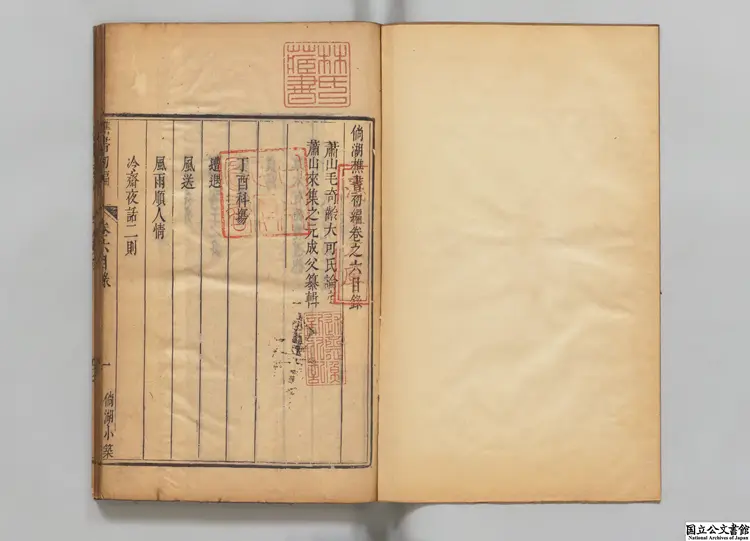 倘湖樵書初編卷之六目錄
蕭山毛奇齡大可氏論定
蕭山來集之元成父纂輯
丁酉科場
遭遇
風送
風雨順人情
冷齋夜話二則
樵書初編
卷六目錄
一
倘湖小築
林氏藏書
国立公文書館
National Archives of Japan